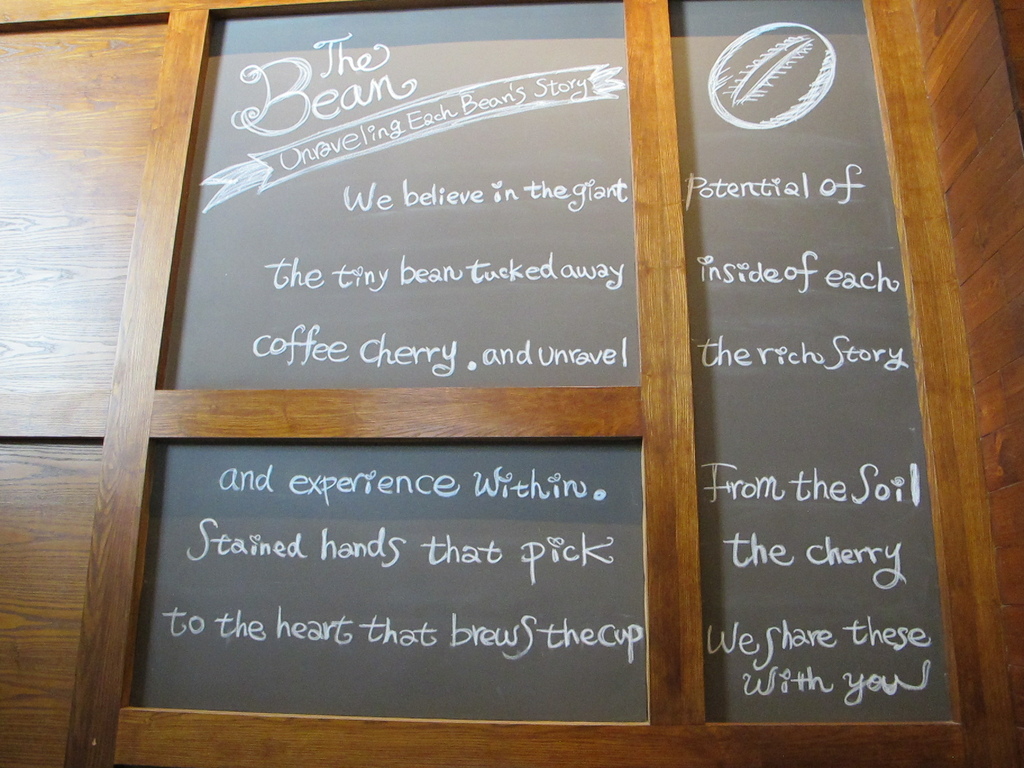 The
Bean
Unraveling Each Bean's Story
We believe in the giant Potential of
the tiny bean tucked away inside of each
coffee cherry. and unravel the rich Story
and experience within. From the Soil
Stained hands that pick the cherry
to the heart that brews the cup We share these
with you